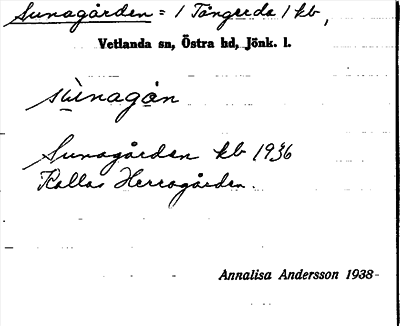 Sunagården = 1 Tångerda 1 kb,
Vetlanda sn, Östra hd, Jönk. l.
sùnagån
Sunagården kb 1936
Kallas Herrgården.
Annalisa Andersson 1938-